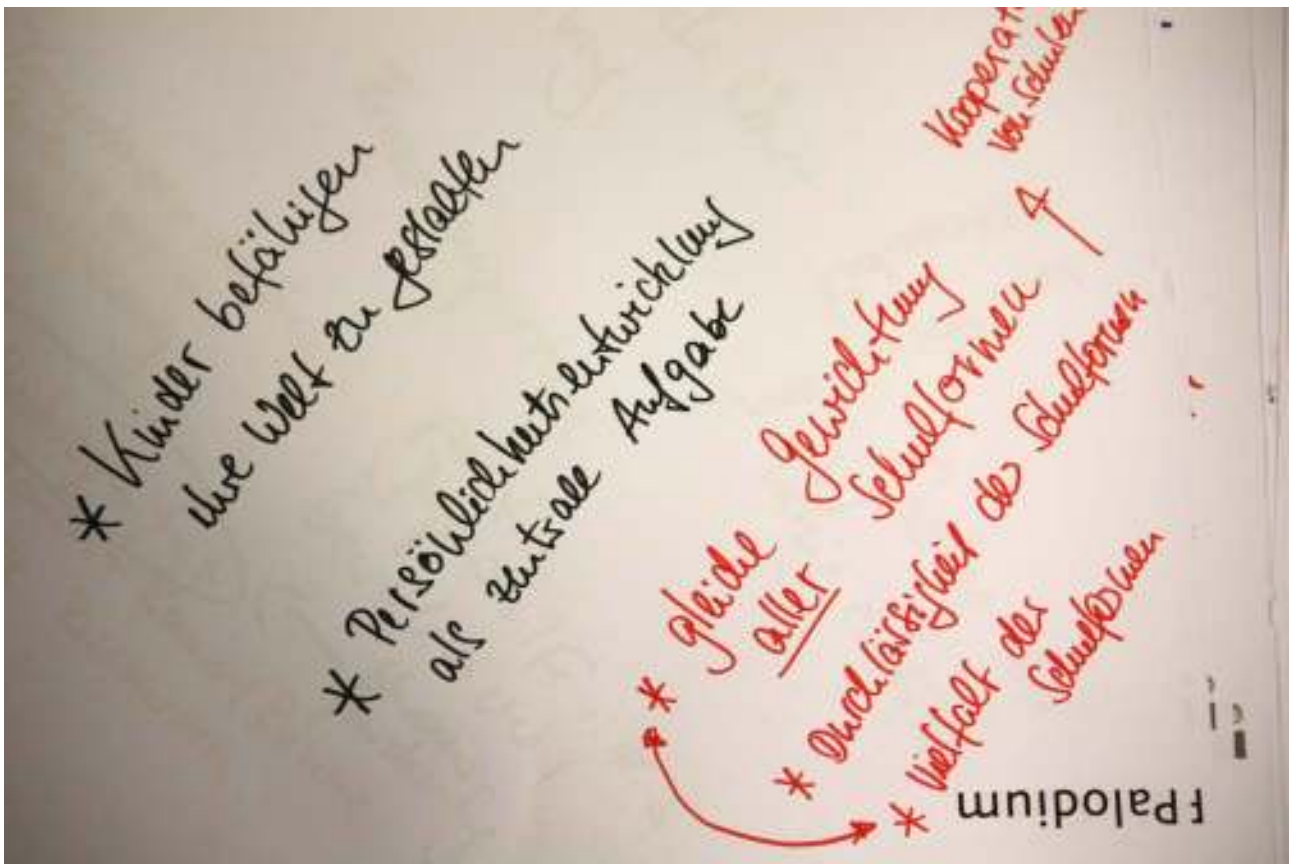 * Kinder befähigen
ihre Welt zu gestalten
* Persönlichkeitsentwicklung
als zentrale Aufgabe
* gleiche Gewichtung
aller Schulformen
* Durchlässigkeit der Schulformen
* Vielfalt der
Schulformen
Kooperat
von Schulen
FPalodium